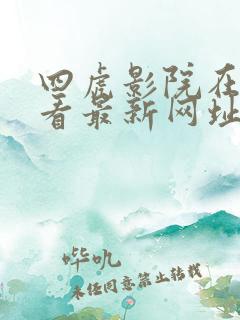 四虎影院在
看最新网址
哔叽
未经同意禁止转载